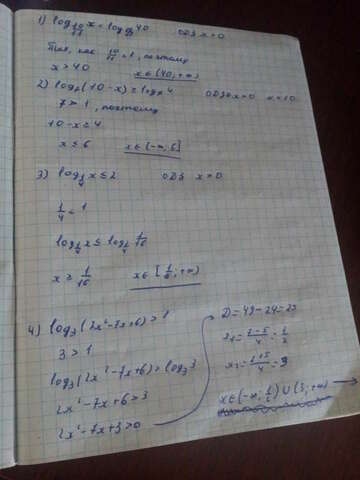 1) log₁₀/₁₁ x < log₁₀/₁₁ 40 ОДЗ x>0
Так, как 10/11 < 1, поэтому
x > 40 x∈(40; +∞)
2) log₇(10-x) ≥ log₇ 4 x<10
7 > 1, поэтому
10-x ≥ 4
x ≤ 6 x∈(-∞; 6]
3) log₁/₄ x ≤ 2 ОДЗ x > 0
1/4 < 1
log₁/₄ x ≤ log₁/₄ 1/16
x ≥ 1/16 x∈[1/16; +∞)
4) log₃(2x²-7x+6) > 1
3 > 1
log₃(2x²-7x+6) > log₃ 3
2x²-7x+6 > 3
2x²-7x+3 > 0
D = 49-24 = 25
x₁ = 7-5/4 = 1/2
x₂ = 7+5/4 = 3
x∈(-∞; 1/2) ∪ (3; +∞)